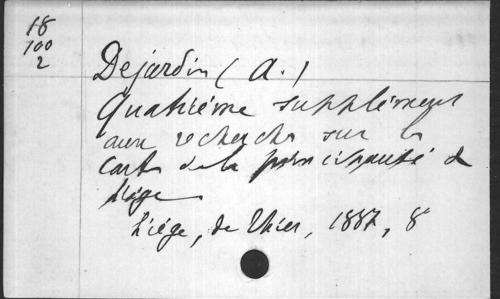 18
100
2
Dejardin (A.)
Quatrième supplément
aux recherches sur les
cartes de la principauté de
Liége
Liége, de Thier, 1887, 8°